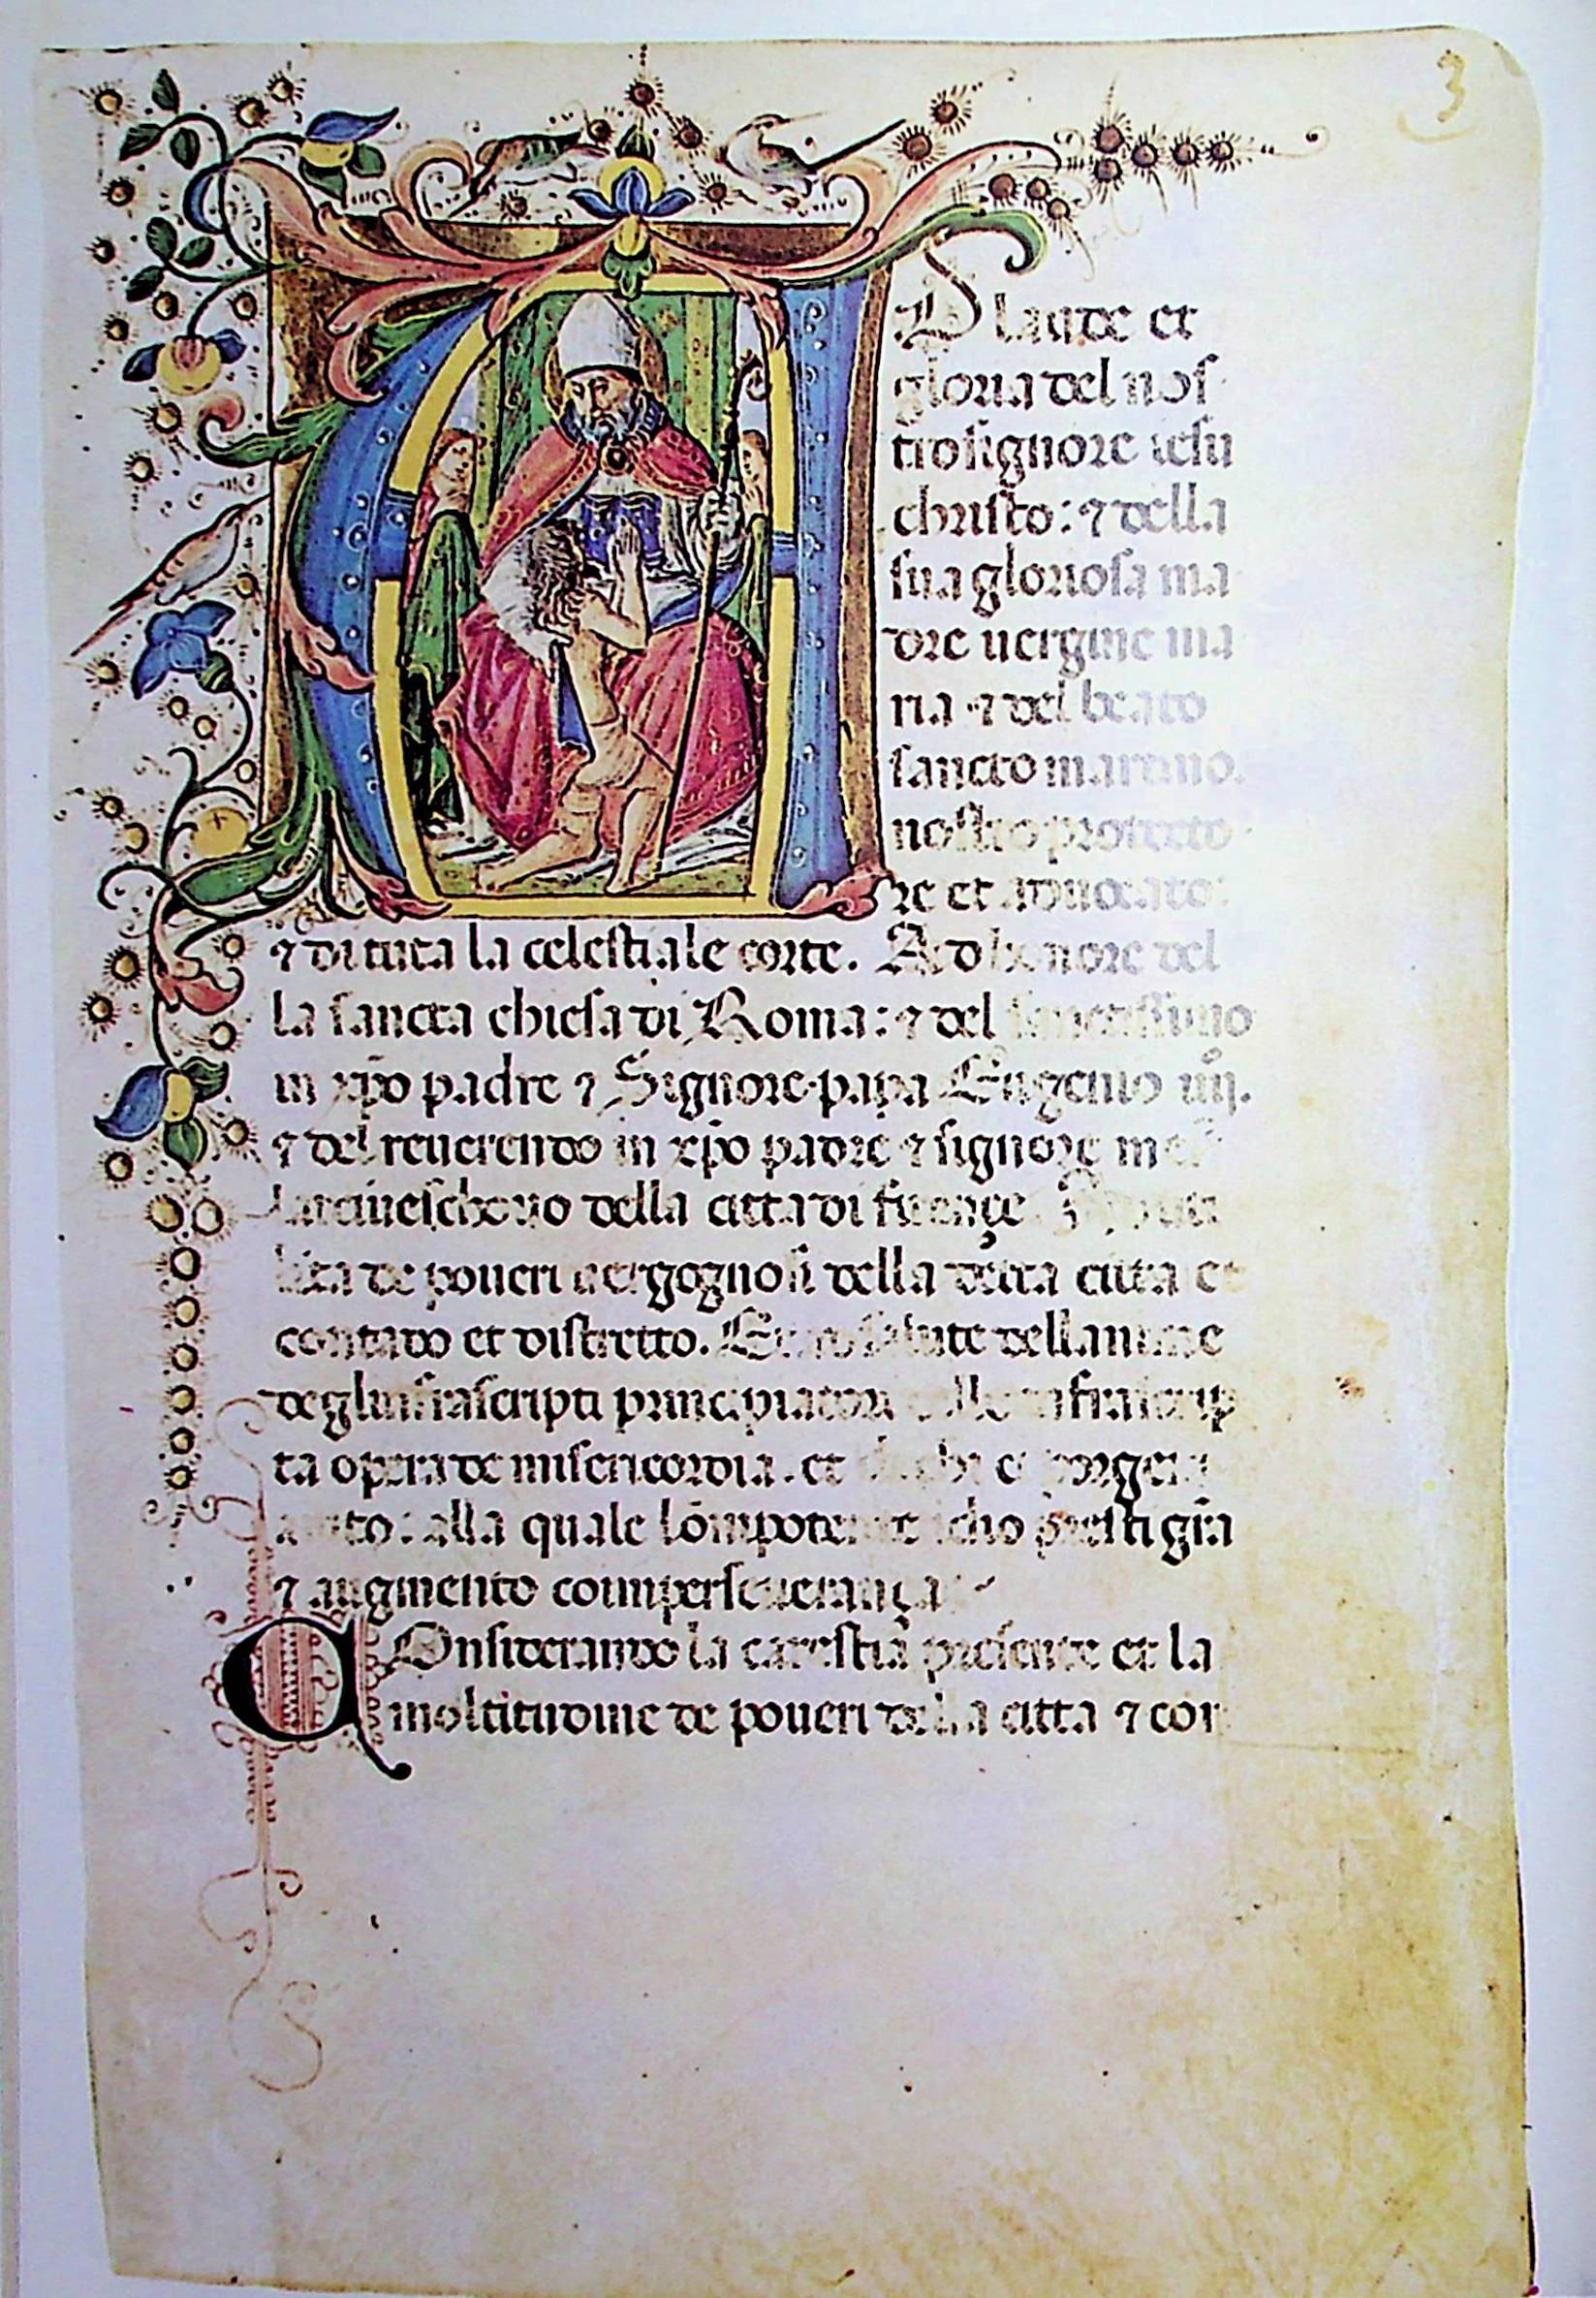 3
A D laude et
gloria del nos
tro signore iesu
christo: ⁊ della
sua gloriosa ma
dre uergine ma
ria ⁊ del beato
sancto martino.
nostro protecto
re et aduocato:
⁊ di tuta la celestiale corte. Ad honore del
la sancta chiesa di Roma: ⁊ del sanctissimo
in xp̄o padre ⁊ Signore papa Eugenio iiij.
⁊ del reuerendo in xp̄o padre ⁊ signore
larciueschouo della citta di firençe
de poueri uergognosi della decta citta et
contado et distretto. salute dellanime
deglinfrascripti principiatori infrascrip
ta opera de misericordia. et
alla quale lōmpotente idio presti gr̄a
⁊ augmento comperseuerança
COnsiderando la carestia presente et la
moltitudine de poueri della citta ⁊ con